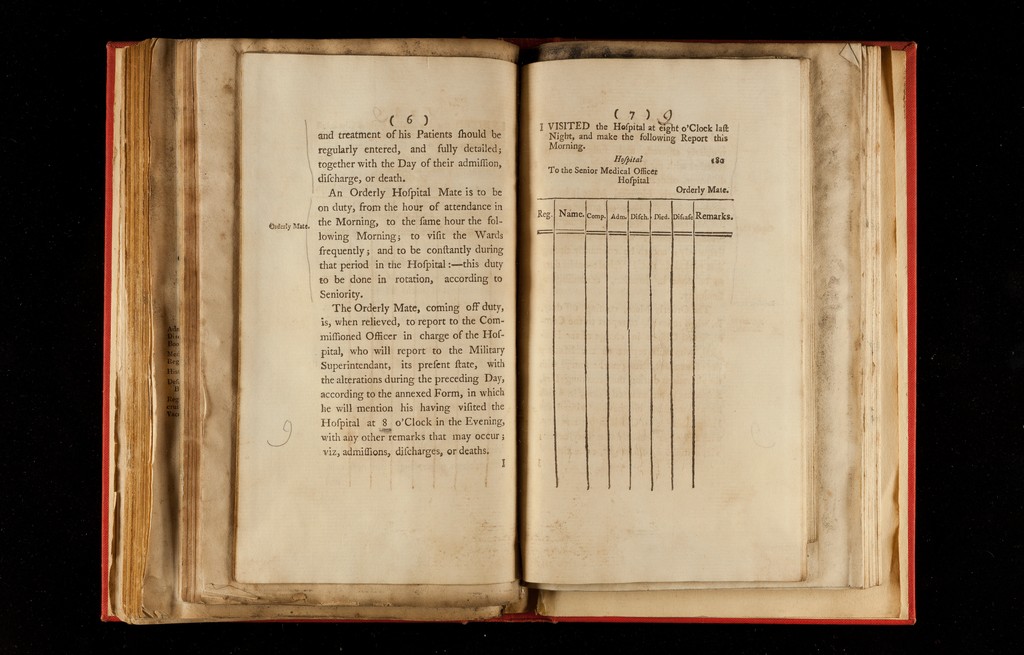 ( 6 )
and treatment of his Patients ſhould be
regularly entered, and fully detailed;
together with the Day of their admiſſion,
diſcharge, or death.
An Orderly Hoſpital Mate is to be
on duty, from the hour of attendance in
Orderly Mate.
the Morning, to the ſame hour the fol-
lowing Morning; to viſit the Wards
frequently; and to be conſtantly during
that period in the Hoſpital:—this duty
to be done in rotation, according to
Seniority.
The Orderly Mate, coming off duty,
is, when relieved, to report to the Com-
miſſioned Officer in charge of the Hoſ-
pital, who will report to the Military
Superintendant, its preſent ſtate, with
the alterations during the preceding Day,
according to the annexed Form, in which
he will mention his having viſited the
Hoſpital at 8 o'Clock in the Evening,
with any other remarks that may occur;
viz, admiſſions, diſcharges, or deaths.
I
9
( 7 ) 9
I VISITED the Hoſpital at eight o'Clock laſt
Night, and make the following Report this
Morning.
Hoſpital 180
To the Senior Medical Officer
Hoſpital
Orderly Mate.
Reg. Name. Comp. Adm. Diſch. Died. Diſeaſe Remarks.